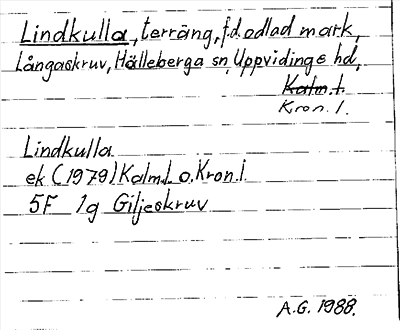 Lindkulla, terräng, f.d. odlad mark,
Långaskruv, Hälleberga sn, Uppvidinge hd,
Kalm. l.
Kron. l.
Lindkulla
ek (1979) Kalm.l. o. Kron.l.
5F 1g Giljeskruv
A.G. 1988.